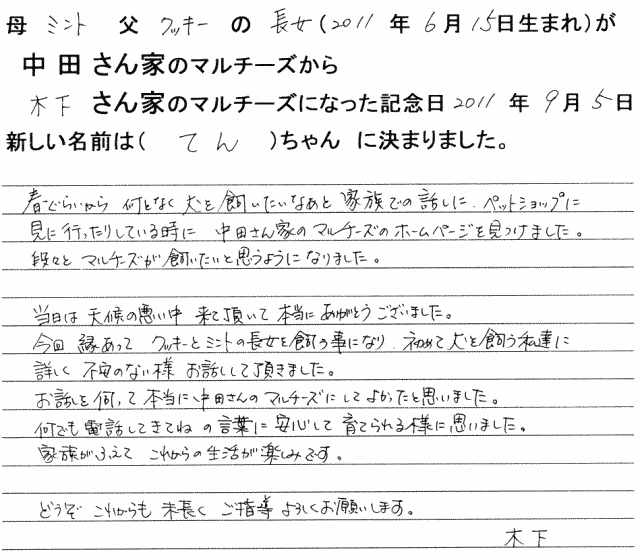 母 ミント 父 クッキー の 長女(2011 年 6月 15日生まれ)が
中田さん家のマルチーズから
木下 さん家のマルチーズになった記念日 2011 年 9月 5日
新しい名前は( てん )ちゃん に決まりました。
春ぐらいから 何となく 犬を飼いたいなあと 家族での話しに、ペットショップに
見に行ったりしている時に 中田さん家のマルチーズのホームページを見つけました。
段々と マルチーズが飼いたいと思うようになりました。
当日は 天候の悪い中 来て頂いて 本当に ありがとうございました。
今回 縁あって クッキーとミントの長女を飼う事になり、初めて犬を飼う私達に
詳しく 不安のない様 お話しして頂きました。
お話しを伺って 本当に、中田さんのマルチーズにしてよかったと思いました。
何でも電話してきてね の言葉に 安心して 育てられる様に思いました。
家族がふえて これからの生活が楽しみです。
どうぞ これからも 末長く ご指導 よろしくお願いします。
木下